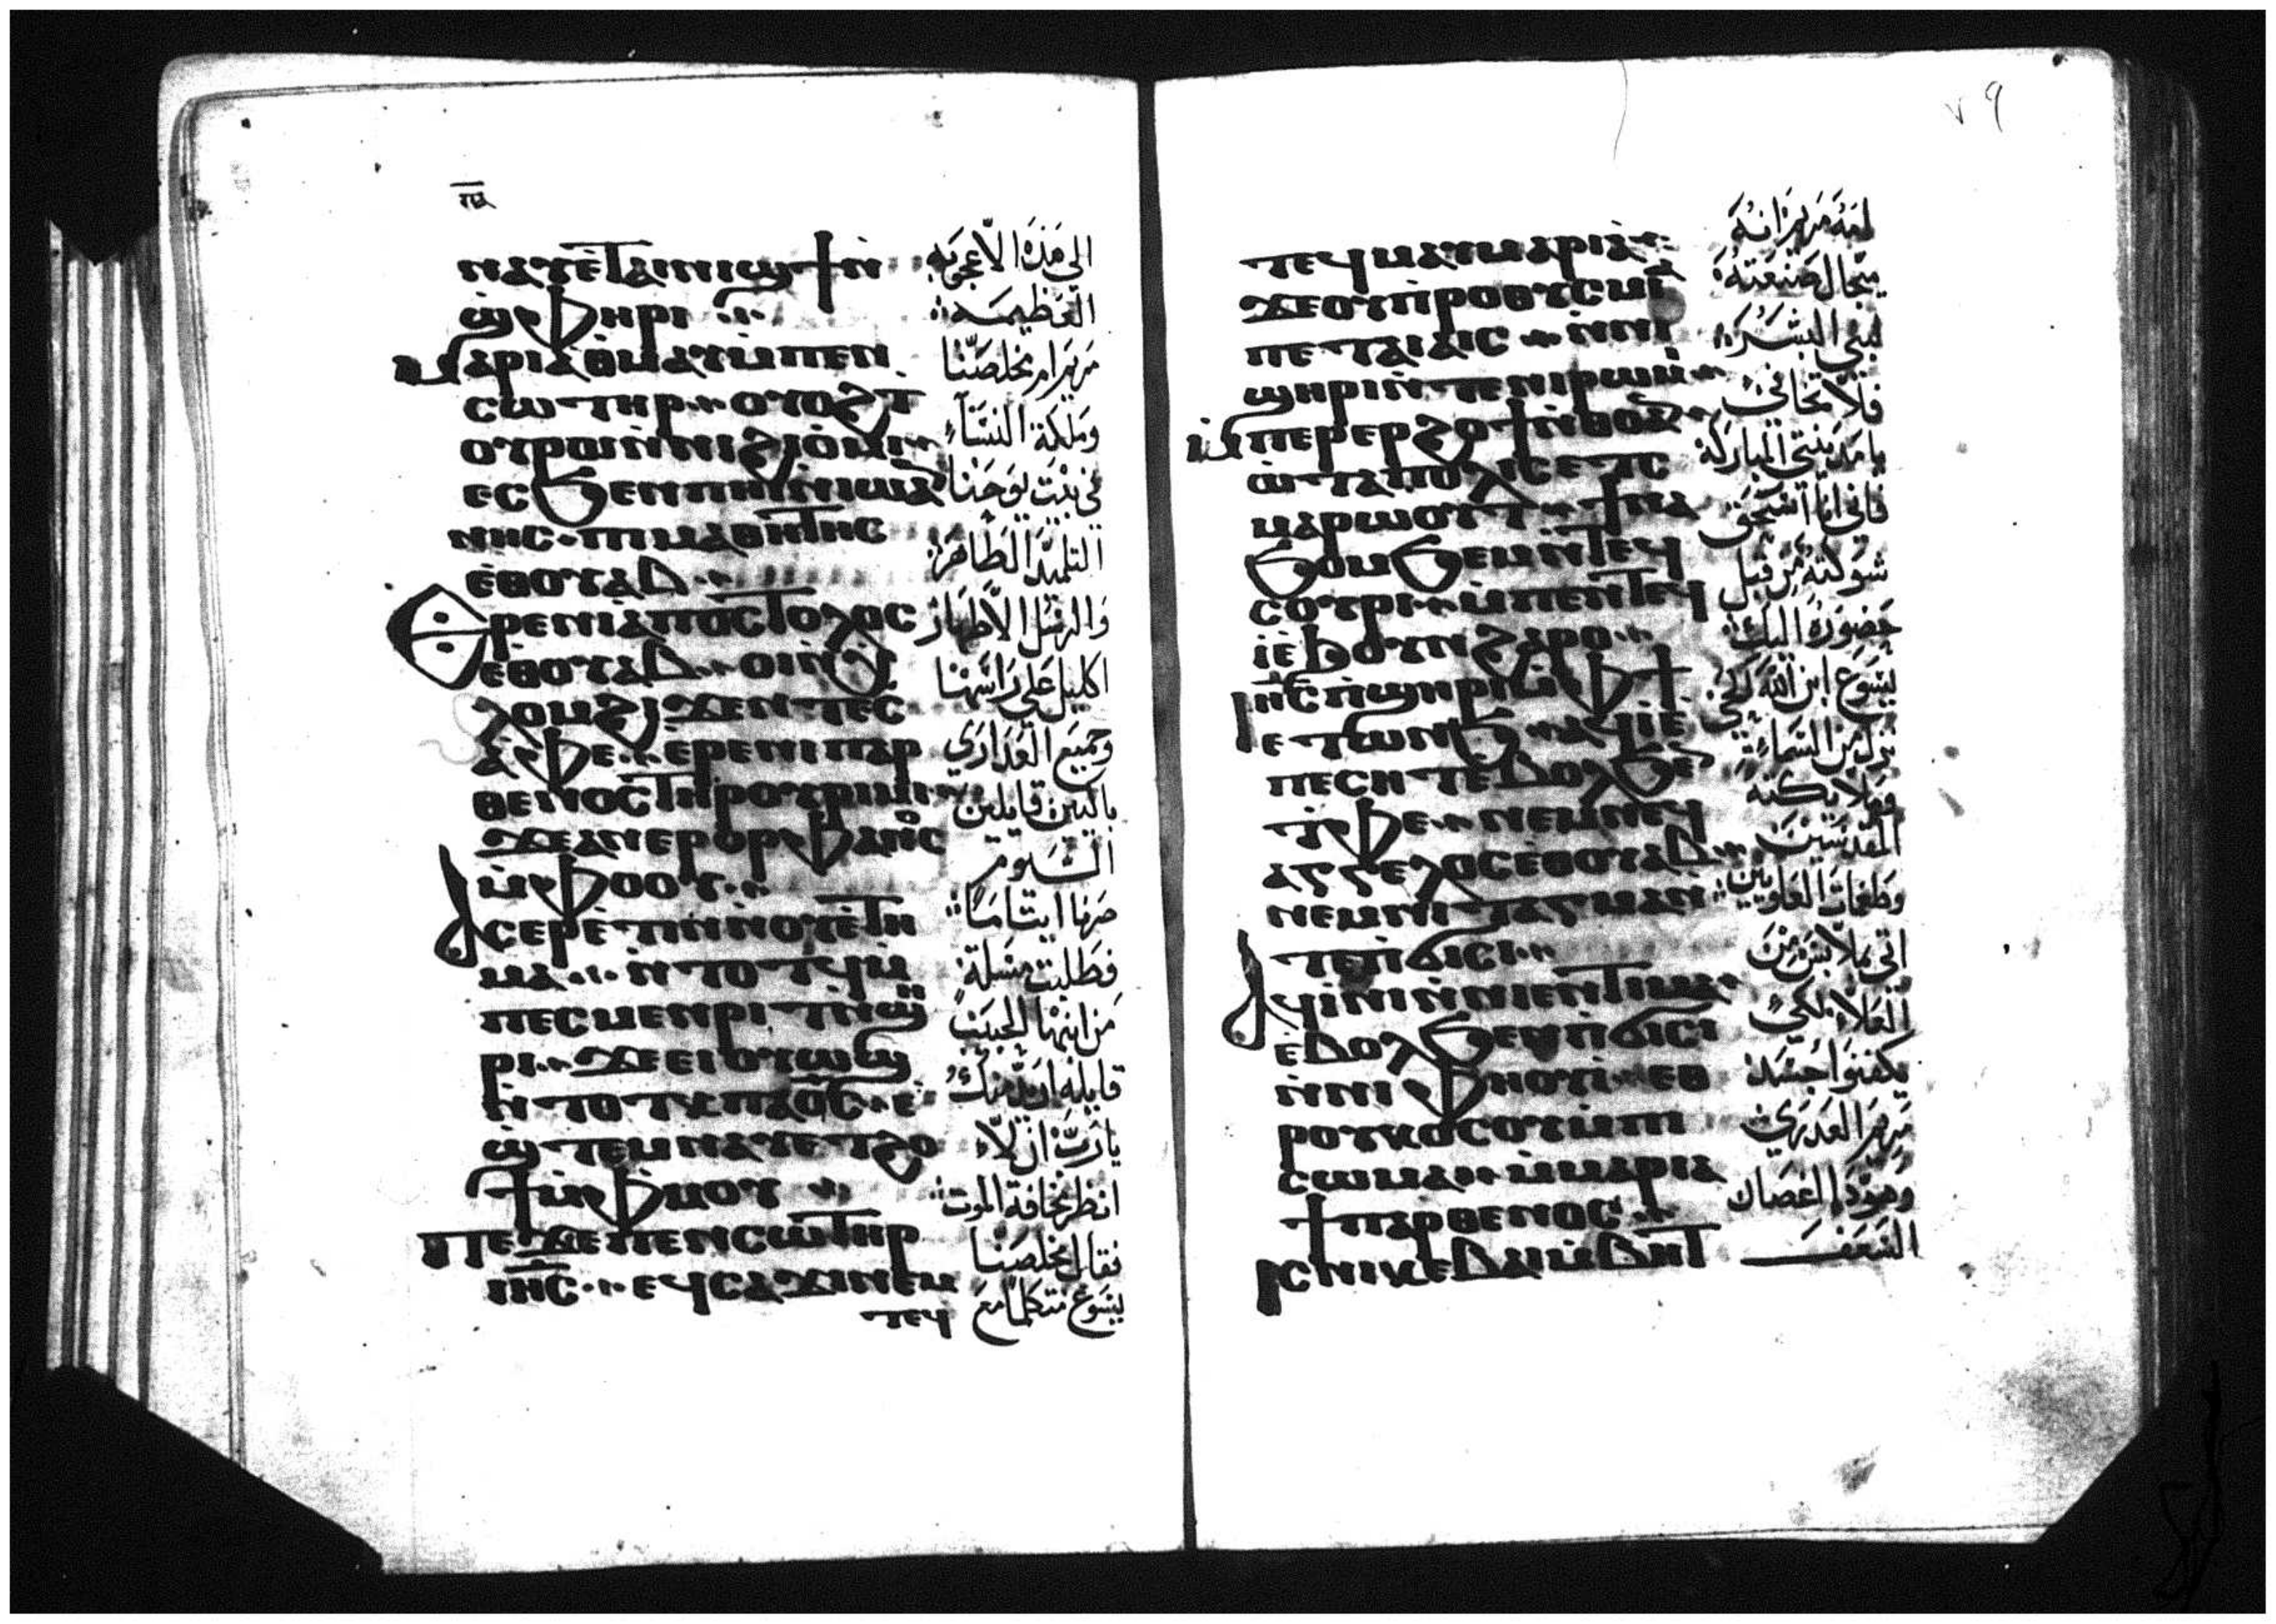 ⲛⲁⲩⲉ̀ⲧⲁⲓⲛⲓϣϯⲛ̀
ϣ̀ⲫⲏⲣⲓ
ⲙⲁⲣⲓⲁⲑⲙⲁⲩⲙ̀ⲡⲉⲛ
ⲥⲱⲧⲏⲣ ⲟⲩⲟϩⲧ
ⲟⲩⲣⲱⲛ̀ⲛⲓϩⲓⲟ̀ⲙⲓ
ⲉⲥϧⲉⲛⲡⲏⲓⲛ̀ⲓⲱⲁ
ⲛⲏⲥ ⲡⲓⲙⲁⲑⲏⲧⲏⲥ
ⲉ̀ⲑⲟⲩⲁⲃ
ⲉⲣⲉⲛⲓⲁ̀ⲡⲟⲥⲧⲟⲗⲟⲥ
ⲉⲑⲟⲩⲁⲃ ⲟⲓⲛ̀ⲭ
ⲗⲟⲙϩⲓϫⲉⲛⲧⲉⲥ
ⲁ̀ⲫⲉ ⲉ̀ⲣⲉⲛⲓⲡⲁⲣ
ⲑⲉⲛⲟⲥⲧⲏⲣⲟⲩⲣⲓⲙⲓ
ϫⲉⲁⲛⲉⲣⲟⲣⲫⲁⲛⲟⲥ
ⲙ̀ⲫⲟⲟⲩ
ⲁⲥⲉⲣⲉ̀ⲧⲓⲛⲛ̀ⲟⲩⲉ̀ⲧⲏ
ⲙⲁ ⲛ̀ⲧⲟⲧϥⲙ̀
ⲡⲉⲥⲙⲉⲛⲣⲓⲧⲛ̀ϣ
ⲣⲓ ϫⲉⲉⲓⲟⲩⲱϣ
ⲛ̀ⲧⲟⲧⲕⲡϭⲟⲓⲥ ⲉ
ϣ̀ⲧⲉⲙⲛⲁⲩⲉⲧϩⲟ
ϯⲙ̀ⲫⲙⲟⲩ
ⲡⲉϫⲉⲡⲉⲛⲥⲱⲧⲏⲣ
ⲓⲏⲥ ⲉϥⲥⲁϫⲓⲛⲉⲙ
ⲧⲉϥ
الي هذه الاعجوبه
العظيمه
مريم ام مخلصنا
وملكة النساء
في بيت يوحنا
التلميذ الطاهر
والرسل الاطهار
اكليل علي راسها
وجميع العذاري
باكيين قايلين
اليوم
صرنا ايتاما
فطلبت مسلة
من ابنها الحبيب
قايله اريد منك
يارب ان لا
انظر مخافة الموت
فقال مخلصنا
يسوع متكلما مع
٧٩
ⲧⲉϥⲙⲁⲩⲙⲁⲣⲓⲁ
ϫⲉⲟⲩⲡ̀ⲣⲟⲑⲩⲥⲙⲓⲁ
ⲡⲉⲧⲁⲓⲁⲓⲥ ⲛ̀ⲛⲓ
ϣⲏⲣⲓⲛ̀ⲧⲉⲛⲓⲣⲱⲙⲓ
ⲙ̀ⲡⲉⲣⲉⲣϩⲟϯⲛ̀ⲑⲟ
ⲱ̀ⲧⲁⲡⲟⲗⲓⲥ ⲉⲧⲥ
ⲙⲁⲣⲱⲟⲩⲧ ϯⲛⲁ
ϧⲟⲙϧⲉⲙⲛ̀ⲧⲉϥ
ⲥⲟⲩⲣⲓ ⲙ̀ⲡⲉⲛⲧⲉϥ
ⲓ̀ⲉ̀ϧⲟⲩⲛϩⲁⲣⲟ
ⲓⲏⲥⲡ̀ϣⲏⲣⲓⲙ̀ⲫϯ
ⲉⲧⲱⲛϧ ⲁϥⲓ̀ⲉ
ⲡⲉⲥⲏⲧⲉ̀ⲃⲟⲗϧⲉ
ⲧ̀ⲫⲉ ⲛⲉⲙⲛⲉϥ
ⲁⲅⲅⲉⲗⲟⲥⲉⲑⲟⲩⲁⲃ
ⲛⲉⲙⲛⲓⲧⲁⲅⲙⲁⲛ̀
ⲧⲉⲡ̀ϭⲓⲥⲓ
ⲁϥⲓ̀ⲛⲓⲛ̀ⲛⲓⲉⲛⲧⲓⲙⲁ
ⲉ̀ⲃⲟⲗϧⲉⲛⲡ̀ϭⲓⲥⲓ
ⲛ̀ⲛⲓⲫⲏⲟⲩⲓ̀ ⲉⲑ
ⲣⲟⲩⲕⲟⲥⲟⲩⲙ̀ⲡⲓ
ⲥⲱⲙⲁ ⲙ̀ⲙⲁⲣⲓⲁ
ϯⲡⲁⲣⲑⲉⲛⲟⲥ
ⲓⲥⲛⲓⲕⲉⲃⲁⲓⲙ̀ⲃⲏⲧ
لامه مريم انه
لبني البشر
فلا تخافي
يا مدينتي المباركة
فاني انا اسحق
شوكته من قبل
حضوره اليك
يسوع ابن الله الحي
نزل من السماء
وملايكته
المقدسين
وطغمات العلويين
اتي بملابس من
العلاء لكي
يكفنوا جسد
مريم العذري
وهوذا اغصان
السعف